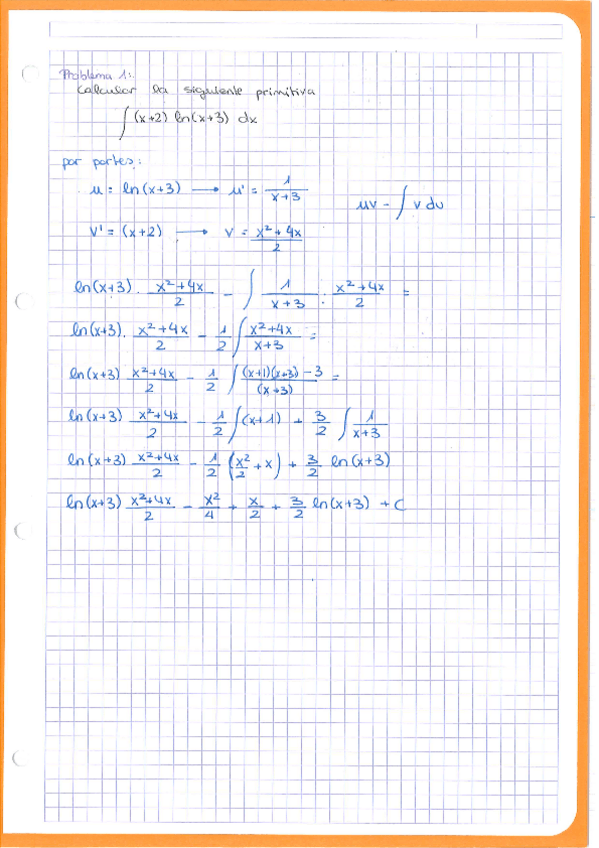 Problema 1:
Calcular la siguiente primitiva
∫ (x+2) ln(x+3) dx
por partes:
u = ln(x+3) → u' = 1/(x+3)
uv - ∫ v du
v' = (x+2) → v = (x²+4x)/2
ln(x+3) · (x²+4x)/2 - ∫ 1/(x+3) · (x²+4x)/2 =
ln(x+3) · (x²+4x)/2 - 1/2 ∫ (x²+4x)/(x+3) =
ln(x+3) (x²+4x)/2 - 1/2 ∫ ((x+1)(x+3) - 3)/(x+3) =
ln(x+3) (x²+4x)/2 - 1/2 ∫ (x+1) + 3/2 ∫ 1/(x+3)
ln(x+3) (x²+4x)/2 - 1/2 (x²/2 + x) + 3/2 ln(x+3)
ln(x+3) (x²+4x)/2 - x²/4 + x/2 + 3/2 ln(x+3) + C